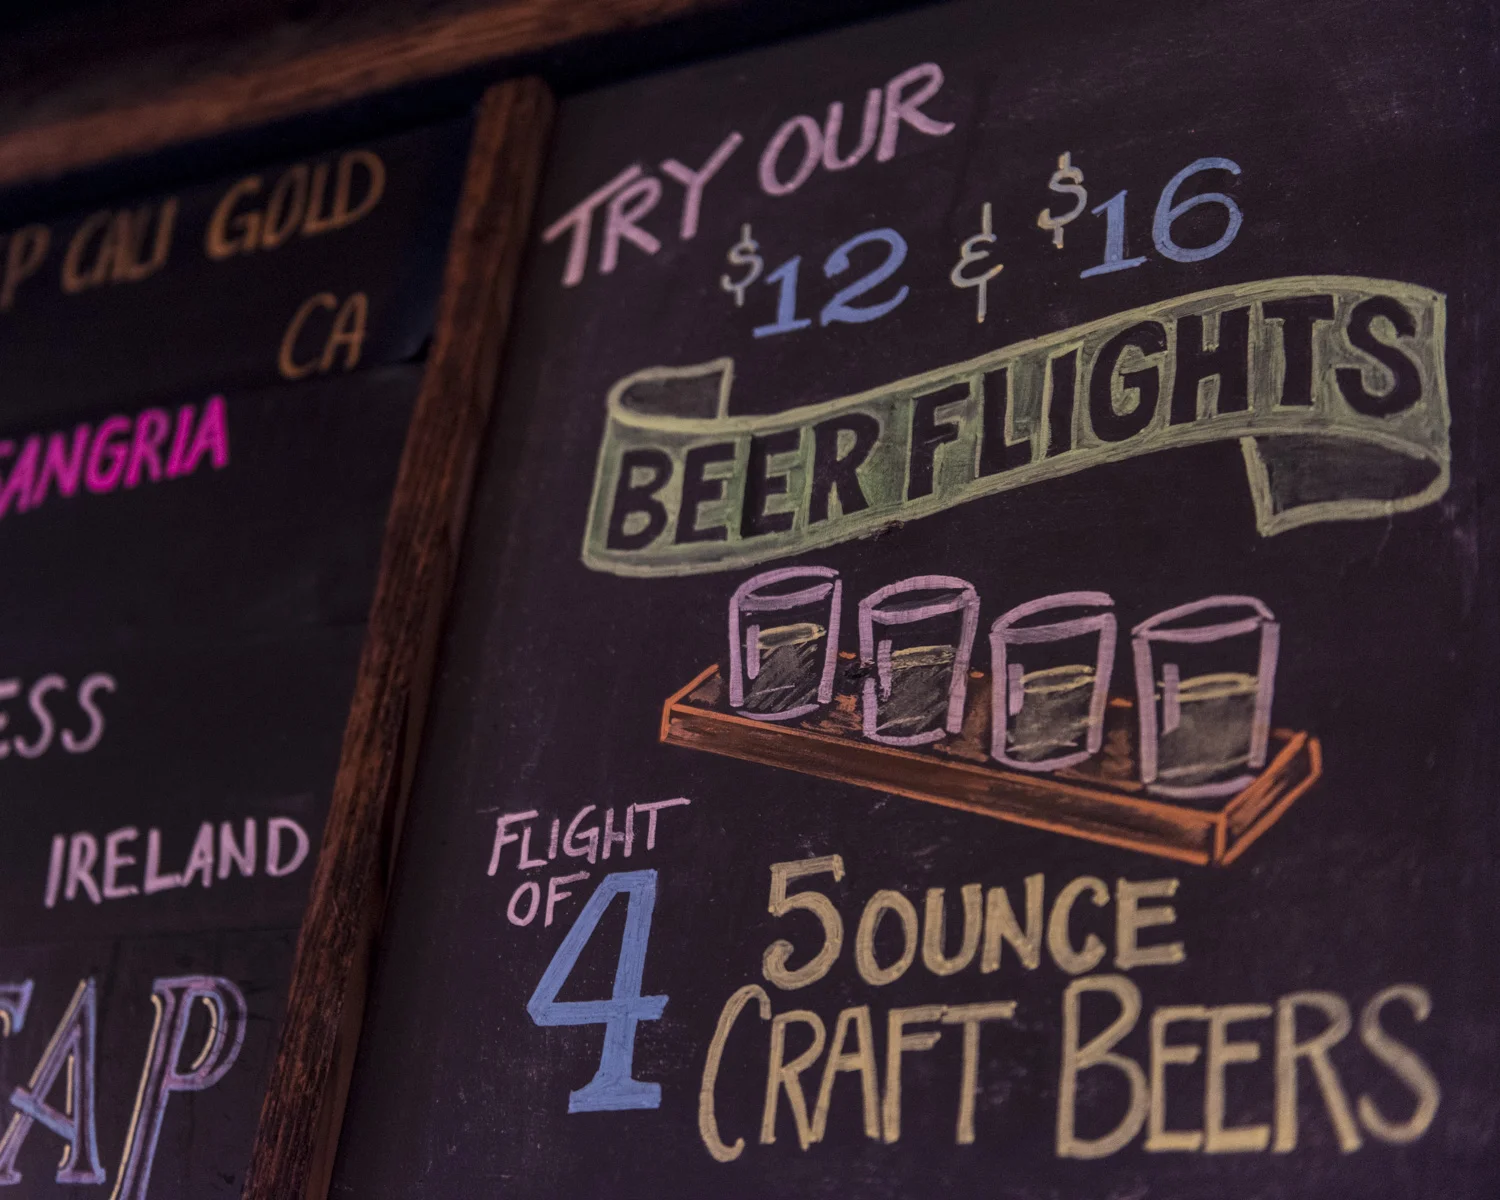 CALI GOLD
CA
SANGRIA
IRELAND
TRY OUR
$12 & $16
BEER FLIGHTS
FLIGHT
OF 4
5 OUNCE
CRAFT BEERS